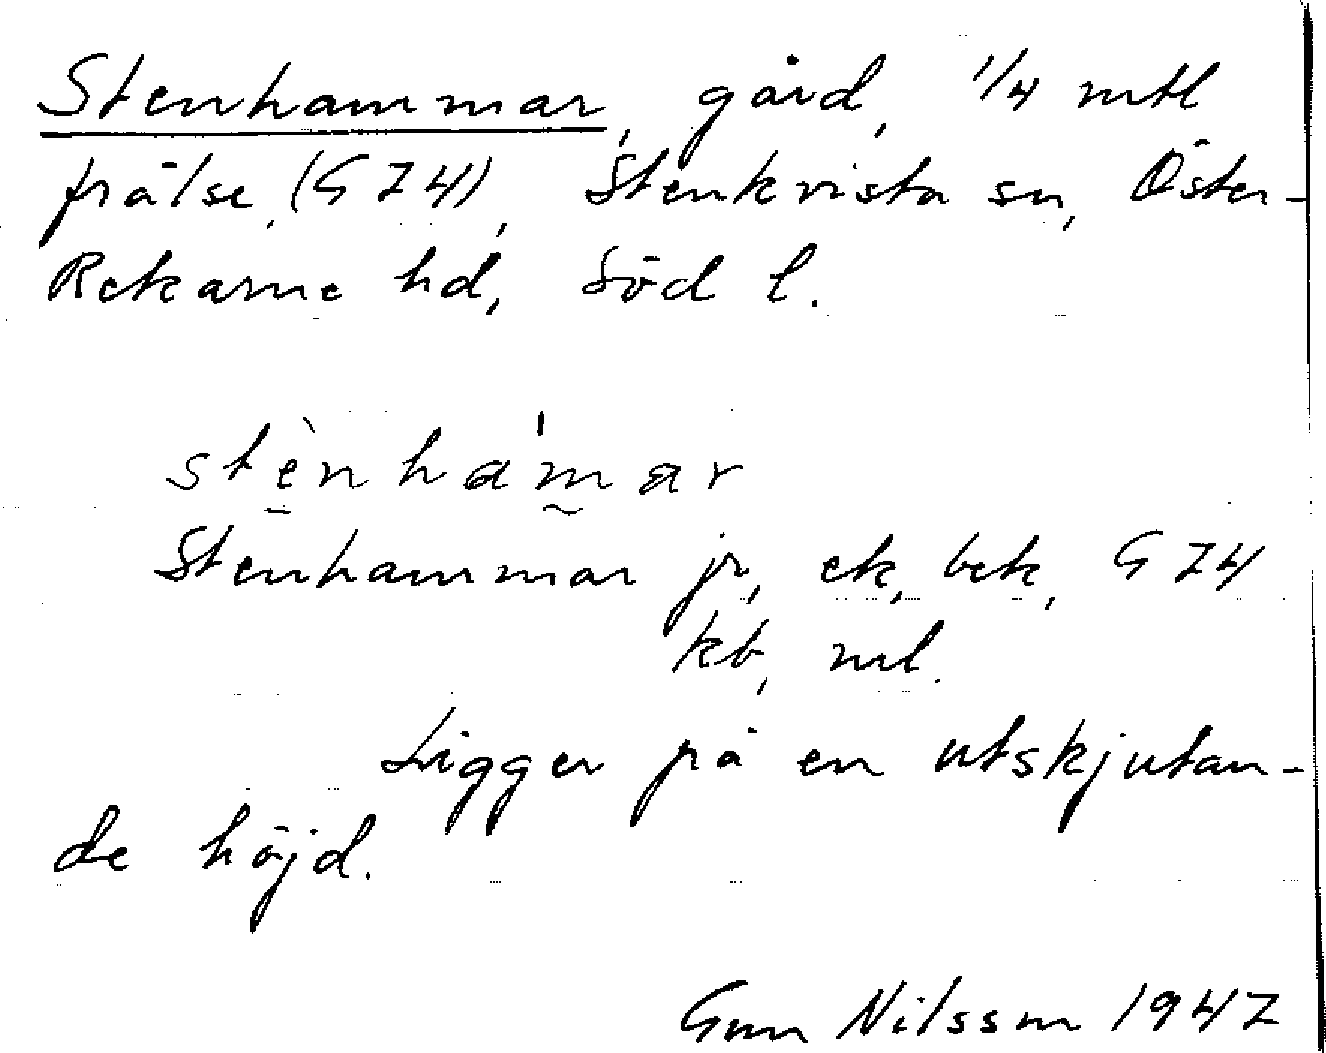 Stenhammar, gård, 1/4 mtl
frälse (G Z4), Stenkvista sn, Öster-
Rekarne hd, Söd l.
stènha'mar
Stenhammar jr, ek, bek, G Z4
kb, ml.
Ligger på en utskjutan-
de höjd.
Gun Nilsson 1947